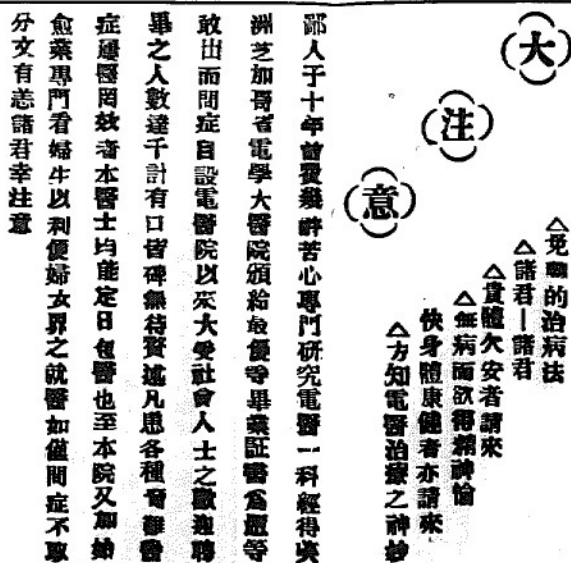 大注意
△免的治病法
△諸君—諸君
△貴體欠安者請來
△無病而欲得精神愉
快身體康健者亦請來
△方知電醫治療之神妙
鄙人于十年前辭苦心專門研究電醫一科經得美
洲芝加哥省電學大醫院頒給最優等畢業証書為憑等
敢出而問症自設電醫院以來大受社會人士之歡迎聘
畢之人數達千計有口皆碑無待贅述凡患各種奇難醫
症屢醫罔效者本醫士均能定日包醫也至本院又加始
愈藥專門看婦生以利便婦女界之就醫如僅問症不取
分文有恙諸君幸注意